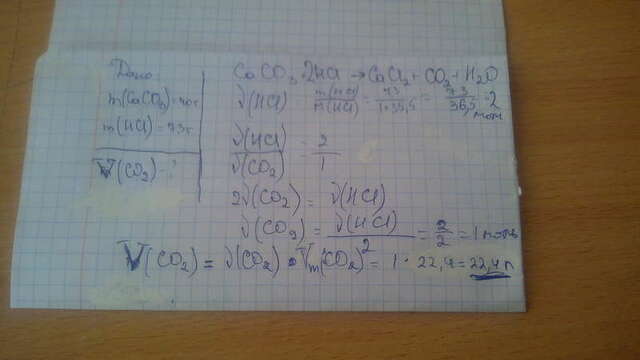 Дано
m(CaCO3) = 40г
m(HCl) = 73г
V(CO2) - ?
CaCO3 + 2HCl → CaCl2 + CO2 + H2O
ν(HCl) = m(HCl) / M(HCl) = 73 / 1+35,5 = 73 / 36,5 = 2 моль
ν(HCl) / ν(CO2) = 2 / 1
2ν(CO2) = ν(HCl)
ν(CO2) = ν(HCl) / 2 = 2 / 2 = 1 моль
V(CO2) = ν(CO2) • Vm(CO2) = 1 • 22,4 = 22,4 л